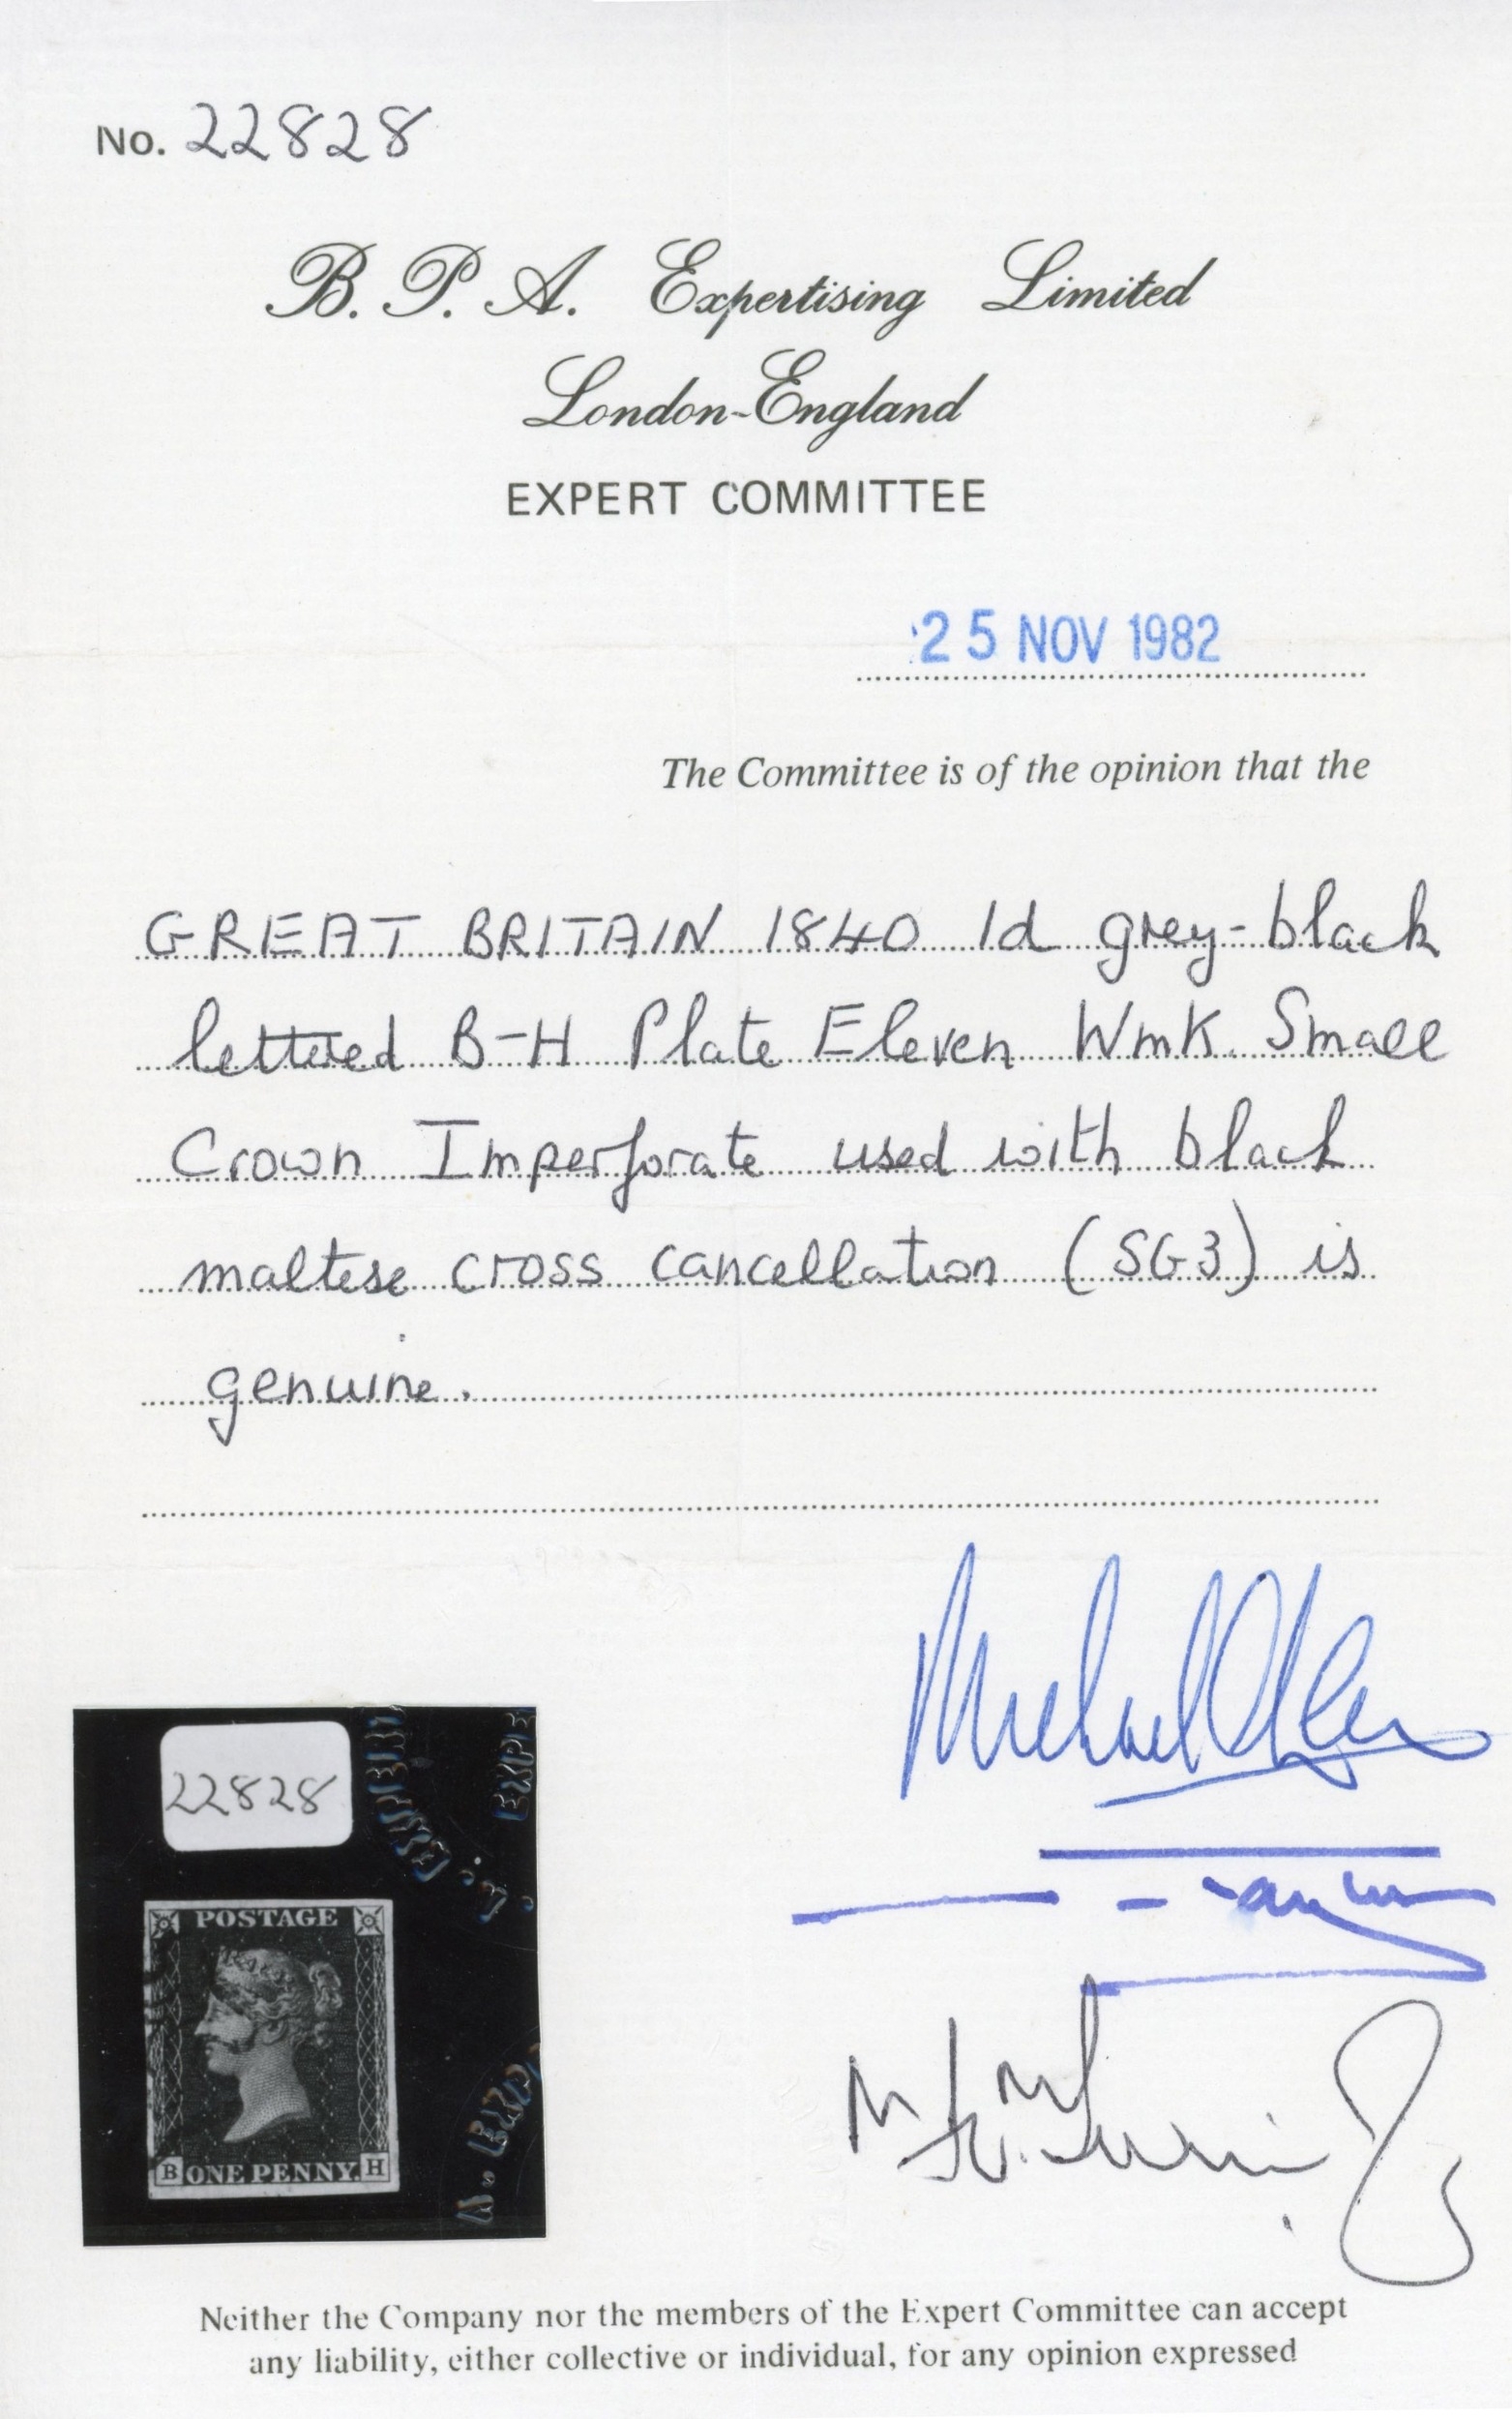 No. 22828
B. P. A. Expertising Limited
London-England
EXPERT COMMITTEE
25 NOV 1982
The Committee is of the opinion that the
GREAT BRITAIN 1840 1d grey-black
lettered B-H Plate Eleven Wmk. Small
Crown Imperforate used with black
maltese cross cancellation (SG3) is
genuine.
22828
POSTAGE
B ONE PENNY. H
Neither the Company nor the members of the Expert Committee can accept
any liability, either collective or individual, for any opinion expressed